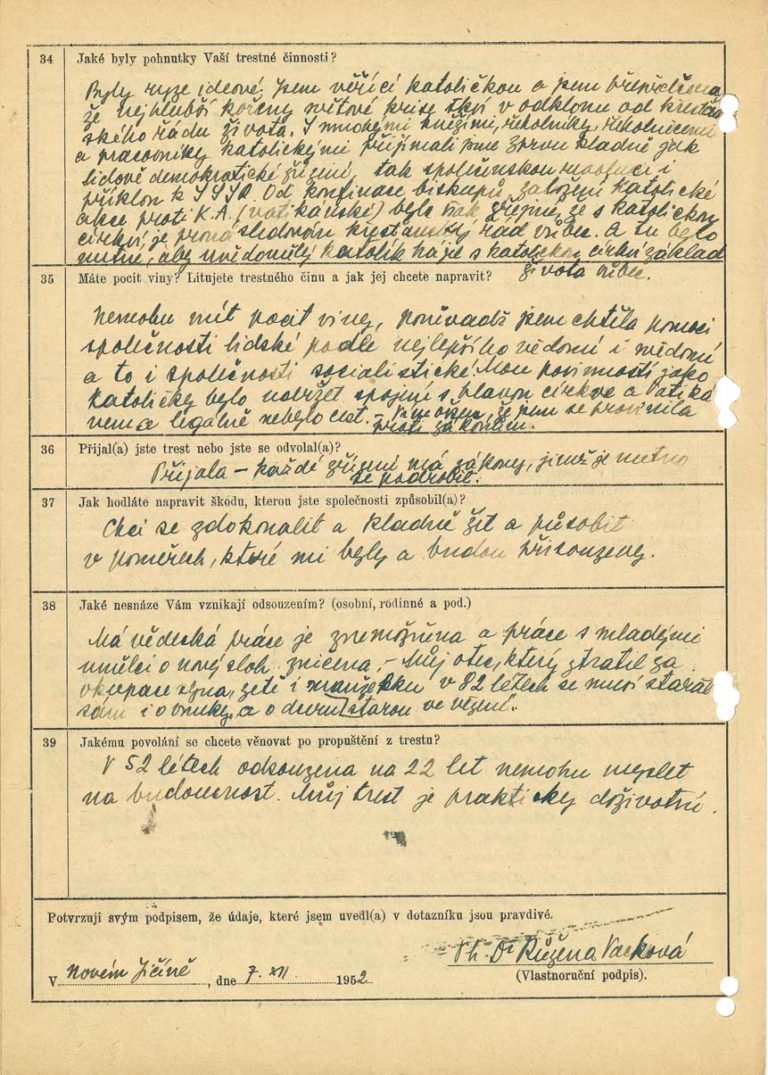 34 Jaké byly pohnutky Vaší trestné činnosti?
Byly ryze ideové. Jsem věřící katoličkou a jsem přesvědčena,
že nejhlubší kořeny světové krise tkví v odklonu od křesťan-
ského řádu života. S mnohými kněžími, řeholníky, řeholnicemi
a pracovníky katolickými přijímali jsme zprvu kladně jak
lidově demokratické zřízení, tak společenskou revoluci i
příklon k SSSR. Od konfinace biskupů, založení katolické
akce proti K.A. (vatikánské) bylo však zřejmé, že s katolickou
církví je pronásledován křesťanský řád vůbec. A tu bylo
nutné, aby uvědomělý katolík hájil s katolickou církví základ
života vůbec.
35 Máte pocit viny? Litujete trestného činu a jak jej chcete napravit?
Nemohu mít pocit viny, poněvadž jsem chtěla pomoci
společnosti lidské podle nejlepšího vědomí i svědomí
a to i společnosti socialistické. Mou povinností jako
katoličky bylo udržet spojení s hlavou církve a Vatiká
nem a legálně nebylo cest. – jsem se provinila
proti zákonům.
36 Přijal(a) jste trest nebo jste se odvolal(a)?
Přijala – každé zřízení má zákony, jimž je nutno
se podrobit.
37 Jak hodláte napravit škodu, kterou jste společnosti způsobil(a)?
Chci se zdokonalit a kladně žít a působit
v poměrech, které mi byly a budou přisouzeny.
38 Jaké nesnáze Vám vznikají odsouzením? (osobní, rodinné a pod.)
Má vědecká práce je znemožněna a práce s mladými
umělci o nový sloh zničena, – Můj otec, který ztratil za
okupace syna, zetě i manželku v 82 létech se musí starat
sám i o vnuky, a o dceru starou ve vězení.
39 Jakému povolání se chcete věnovat po propuštění z trestu?
V 52 létech odsouzena na 22 let nemohu myslet
na budoucnost. Můj trest je prakticky doživotní.
Potvrzuji svým podpisem, že údaje, které jsem uvedl(a) v dotazníku jsou pravdivé.
Ph. Dr Růžena Vacková
V Novém Jičíně, dne 7. XII. 1952 (Vlastnoruční podpis).